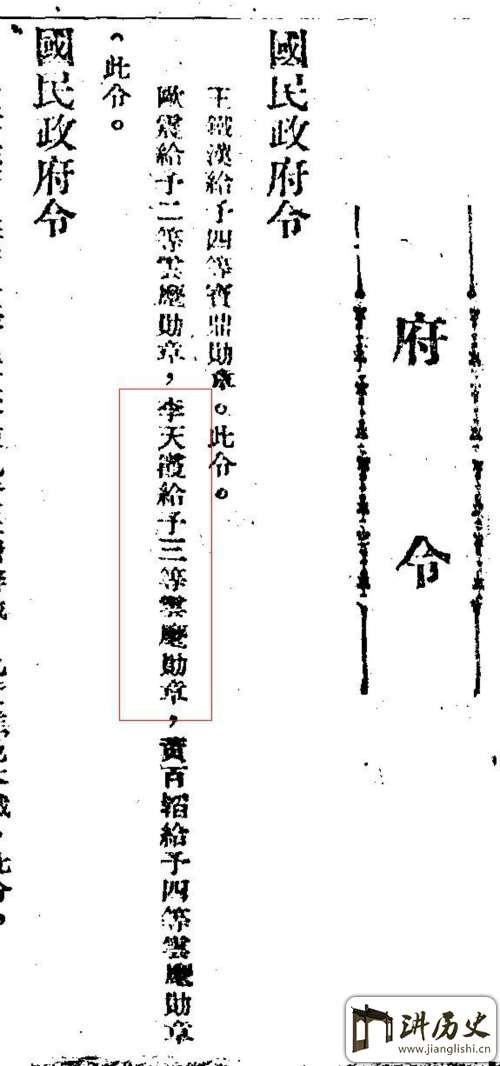 府令
國民政府令
王鐵漢給予四等寶鼎勛章。此令。
歐震給予二等雲麾勛章，李天霞給予三等雲麾勛章，黃百韜給予四等雲麾勛章
。此令。
國民政府令
讲历史
www.jianglishi.cn